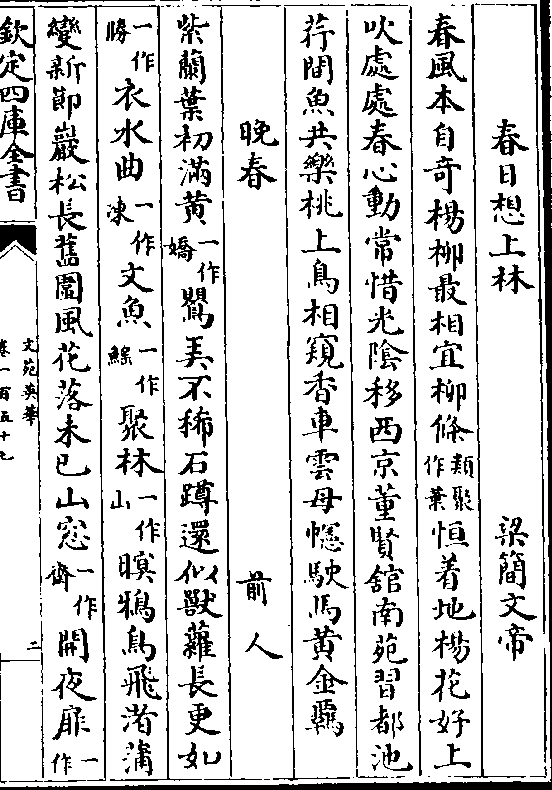 春日想上林　梁簡文帝
春風本自奇楊柳最相宜柳條類聚作葉恒着地楊花好上
吹處處春心動常惜光陰移西京董賢舘南苑習都池
荇間魚共樂桃上鳥相窺香車雲母幰駛馬黄金羈
晚春　前人
紫蘭葉初滿黄一作嬌鸎弄不稀石蹲還似獸蘿長更如
一作勝衣水曲一作凍文魚一作鯀聚林一作山暝鴉鳥飛渚蒲
變新節巖松長舊圍風花落未已山窓一作齋開夜扉一作
欽定四庫全書
文苑英華
卷一百五十九
二